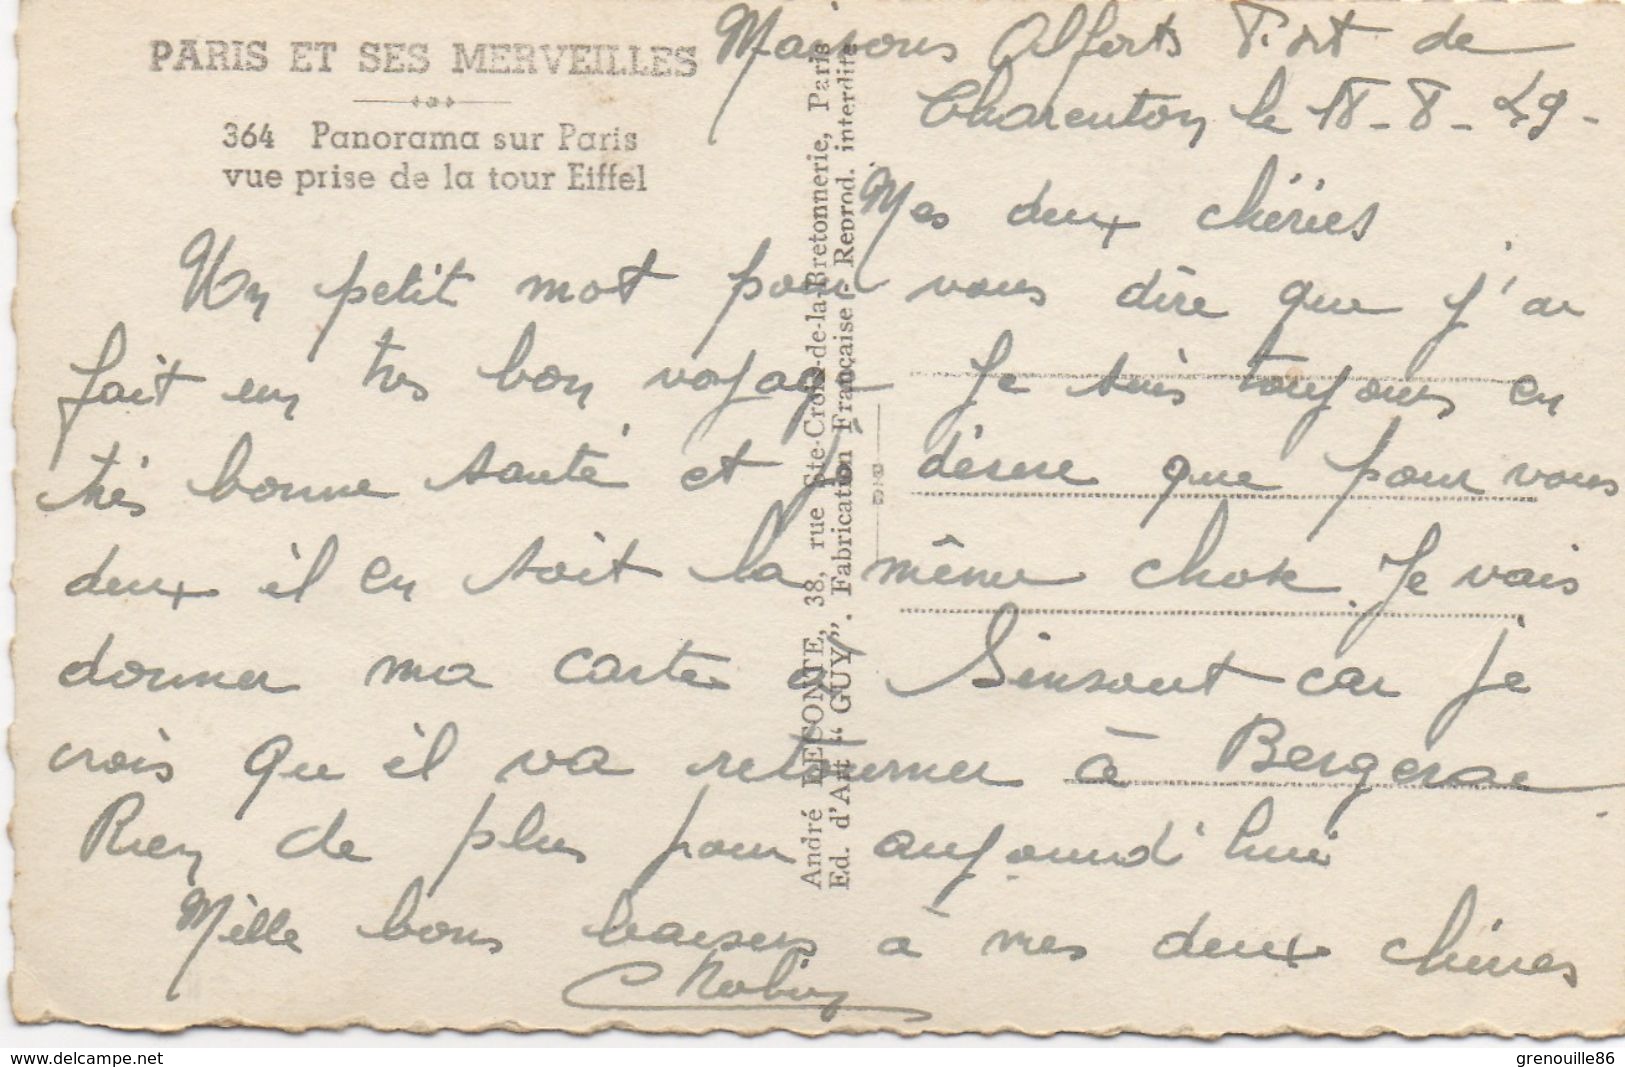 PARIS ET SES MERVEILLES
364 Panorama sur Paris
vue prise de la tour Eiffel
Maisons Alforts Fort de
Charenton le 18-8-49-
Mes deux chéries
Un petit mot pour vous dire que j'ai
fait un très bon voyage Je suis toujours en
très bonne santé et je désire que pour vous
deux il en soit la même chose. Je vais
donner ma carte à Sensout car je
crois qu'il va retourner à Bergerac
Rien de plus pour aujourd'hui
Mille bons baisers à mes deux chéries
André LECONTE, 38, rue Ste-Croix-de-la-Bretonnerie, Paris
Ed. d'Art "GUY". Fabrication Française - Reprod. interdite
delcampe.net
grenouille86